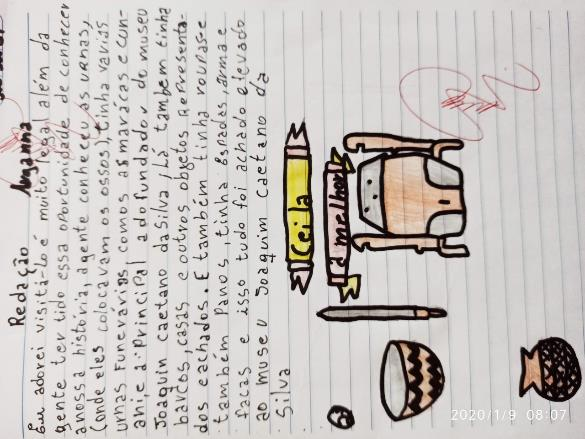 Redação Amanna
Eu adorei visitá-lo é muito legal além da
gente ter tido essa oportunidade de conhecer
a nossa história, agente conheceu as urnas,
(onde eles colocavam os ossos), tinha varias
urnas Funerárias como as maracas e cun-
anie a principal a do fundador do museu
Joaquin caetano da Silva, Lá também tinha
barcos, casas e outros objetos apresenta-
dos eachados. E também tinha roupas e
também Panos, tinha espadas, arma e
facas e isso tudo foi achado elevado
ao museu Joaquim Caetano da
Silva
Ceila
a melhor
2020/1/9 08:07